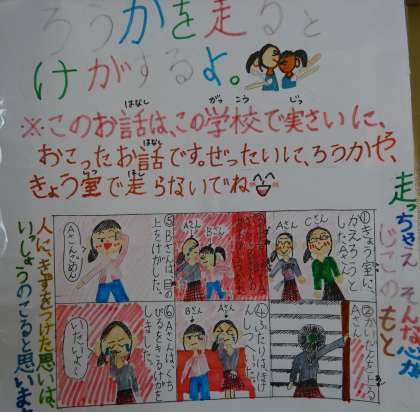 ろうかを走ると
けがするよ。
※このお話は、この学校で実さいに、
おこったお話です。ぜったいに、ろうかや、
きょう室で走らないでね
走っちゃえ そんな心が
じこのもと
①きょう室に、
かえろうと
したAさん
Cさん
Aさん
②かいだんを上る
Aさん
Aさん
Bさん
④ふたりは
Aさん
⑤Bさんは、目の
上をけがした。
Aさんごめん
⑥Aさんは、くち
びるをきるけがを
しました。
いたいよ〜
人に、きずをつけた思いは、
いっしょうのこると思います